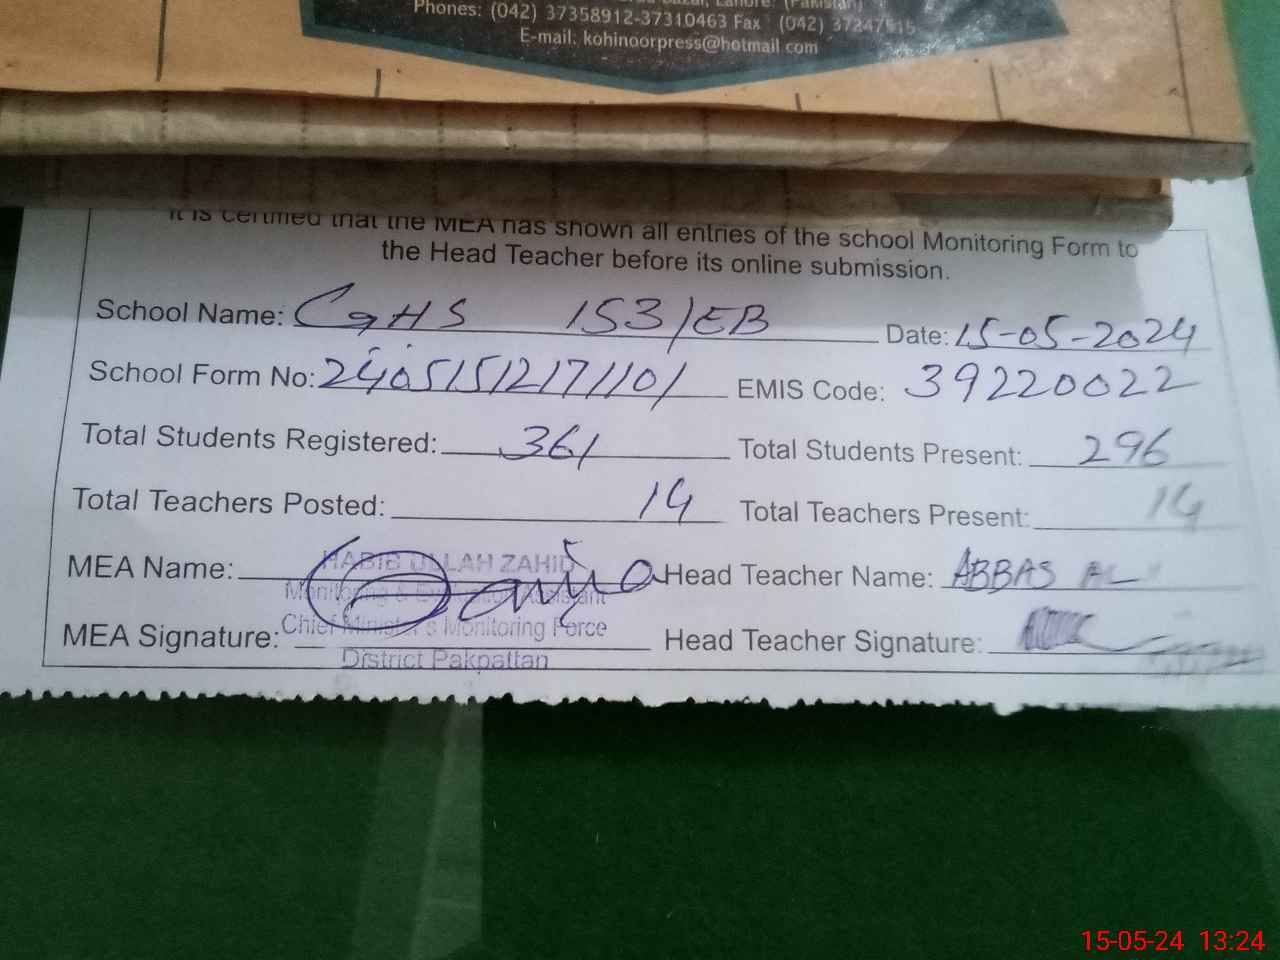 Phones: (042) 37358912-37310463 Fax : (042) 37247515
E-mail: kohinoorpress@hotmail.com
It is certified that the MEA has shown all entries of the school Monitoring Form to
the Head Teacher before its online submission.
School Name: GHS 153/EB Date: 15-05-2024
School Form No: 24051512171101 EMIS Code: 39220022
Total Students Registered: 361 Total Students Present: 296
Total Teachers Posted: 14 Total Teachers Present: 14
MEA Name: HABIB ULLAH ZAHID Head Teacher Name: ABBAS ALI
Monitoring & Evaluation Assistant
MEA Signature: Chief Minister's Monitoring Force Head Teacher Signature:
District Pakpattan
15-05-24 13:24